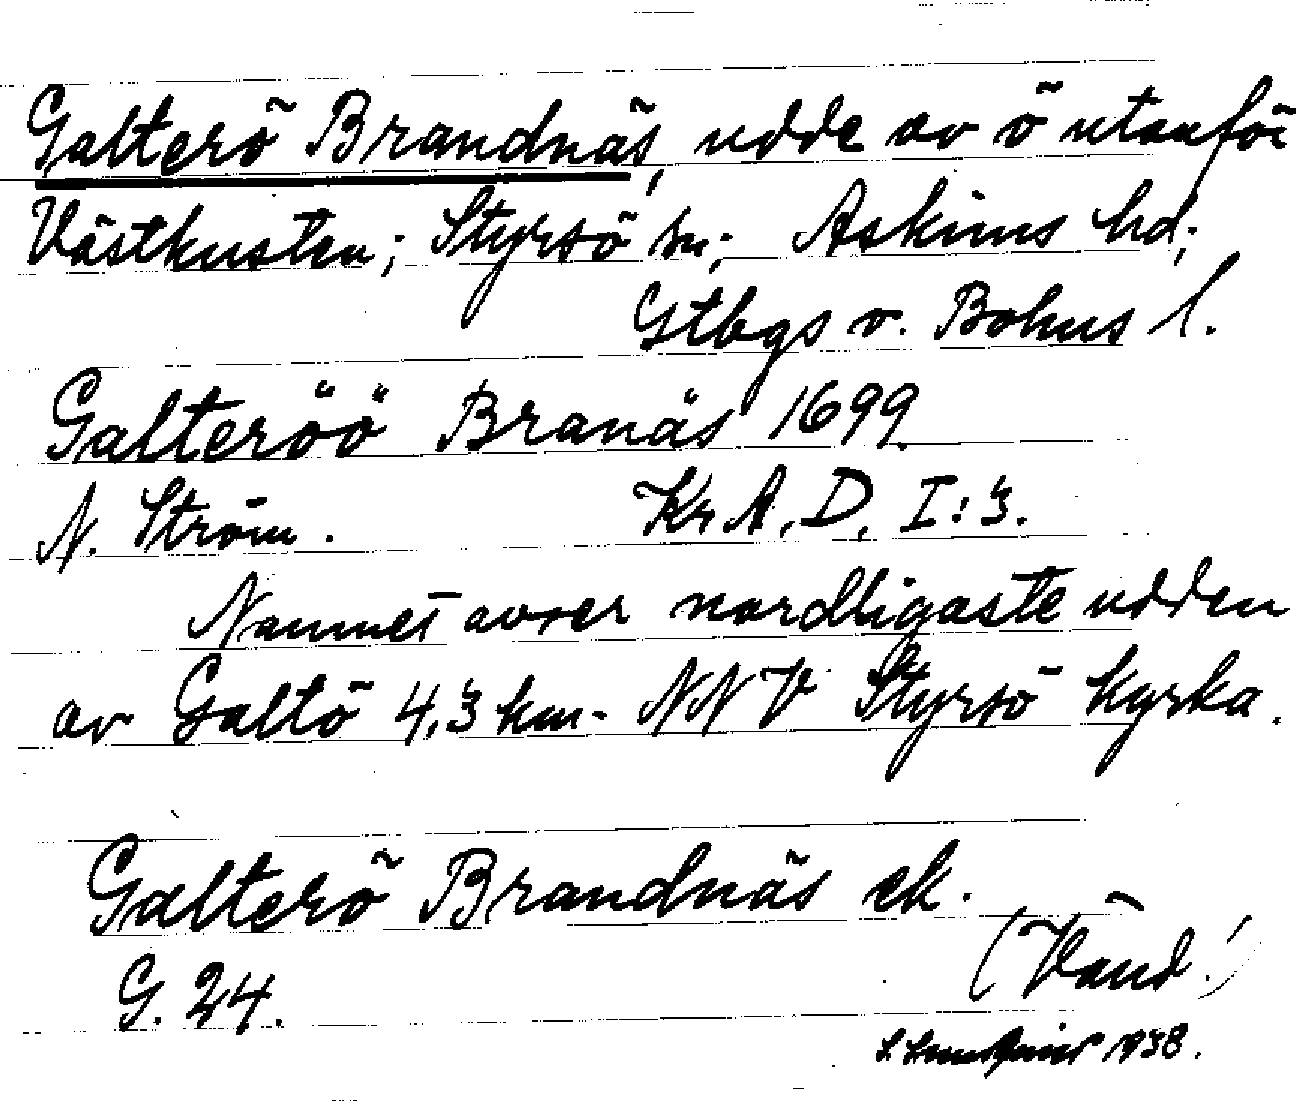 Galterö Brandnäs, udde av ö utanför
Västkusten; Styrsö sn; Askims hd;
Gtbgs o. Bohus l.
Galteröö Branäs 1699
N. Ström. Kr A. D. I:3.
Namnet avser nordligaste udden
av Galtö 4,3 km. NNV Styrsö kyrka.
Galterö Brandnäs ek.
G. 24.
(Vänd!)
1938.